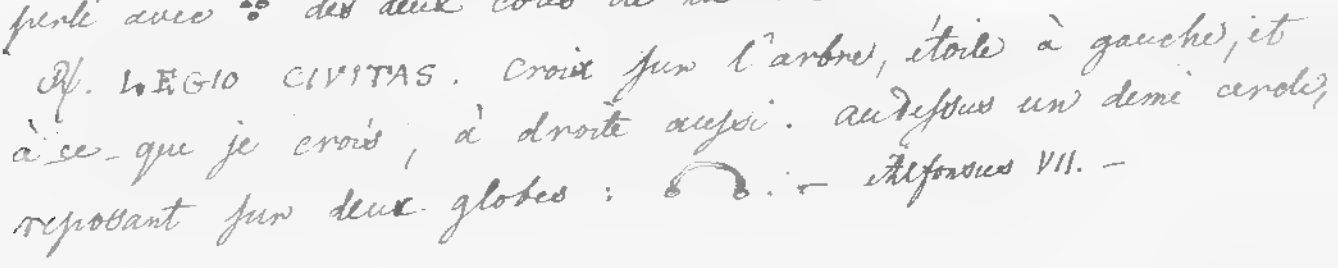 perlé avec des deux
R/. LEGIO CIVITAS. Croix sur l'arbre, étoile à gauche, et
à ce que je crois, à droite aussi. audessus un demi cercle,
reposant sur deux globes : . – Alfonsus VII. –